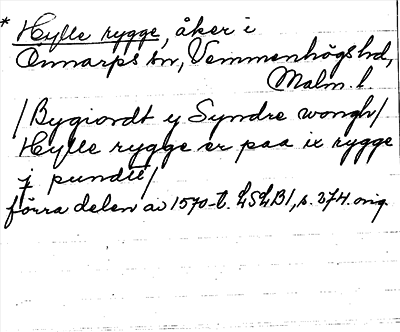 * Hylle rygge, åker i
Onnarps sn, Vemmenhögs hd,
Malm. l.
/Bygiordt y Syndre wongh/
Hylle rygge er paa ix rygge
j pundt/
förra delen av 1570-t. LSLB1, s. 374 orig.